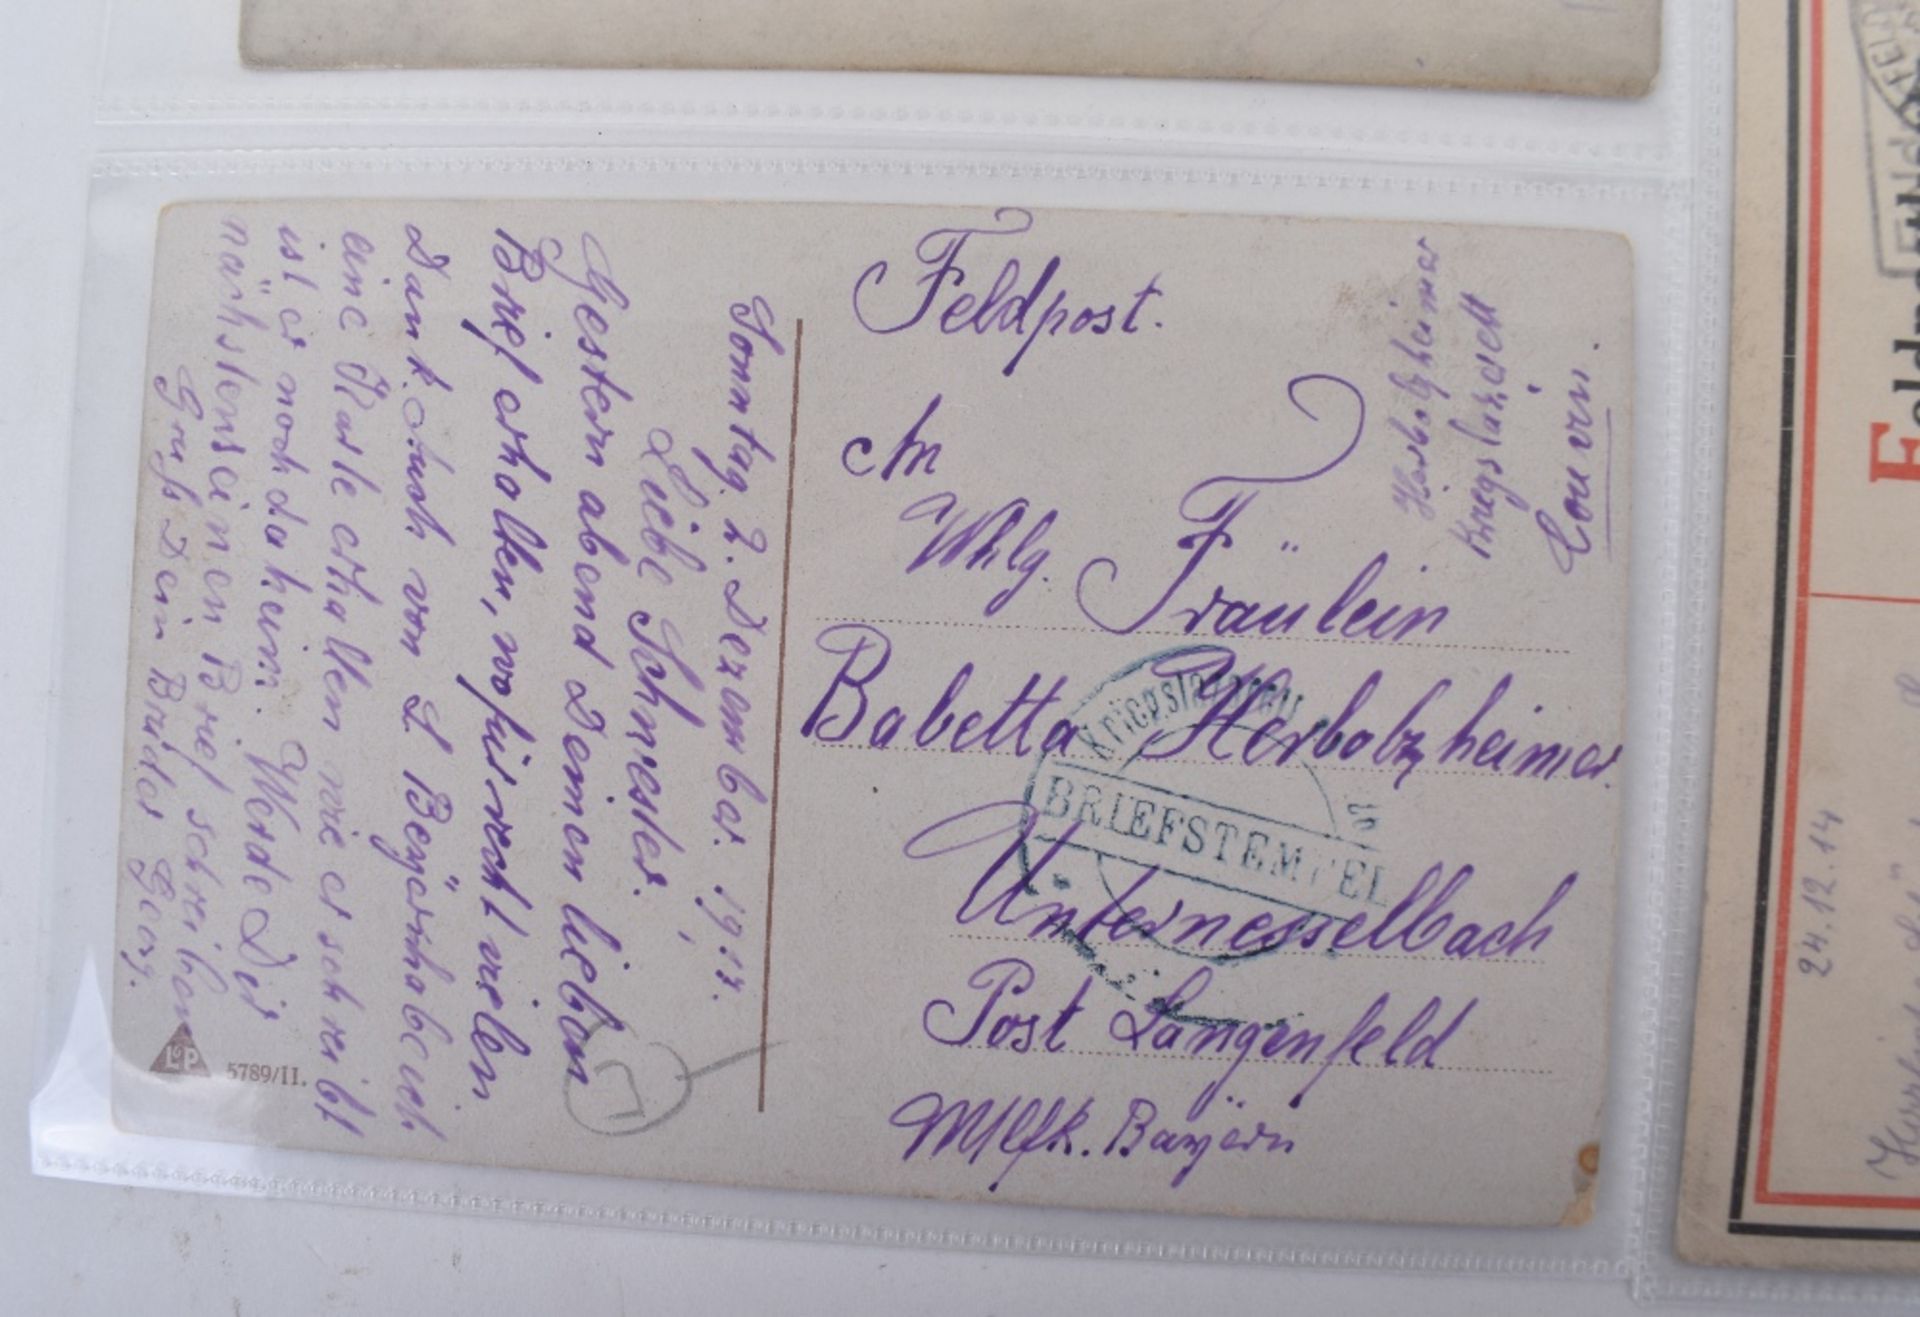 Sonntag 2. Dezember. 1917.
Liebe Schwester.
Gestern abend Deinen lieben
Brief erhalten, wofür recht vielen
Dank. Auch von L Beyerhabe ich
eine Karte erhalten wie er schreibt
ist er noch daheim. Werde Dir
nächstens einen Brief schreiben
Gruß Dein Bruder Georg.
L&P
5789/II.
Feldpost.
Herbolzheimer
Kriegslazarett
Longwy
An
Whlg. Fräulein
Babetta Herbolzheimer
Unternesselbach
Post Langenfeld
Mlfk. Bayern
Kriegslazarett
BRIEFSTEMPEL
24.12.14